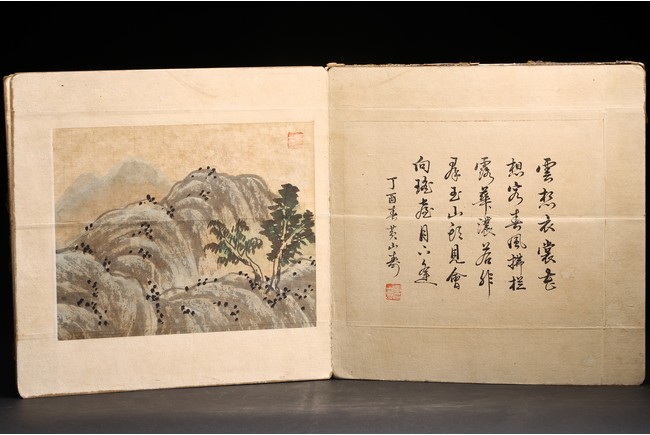 雲想衣裳花
想容春風拂檻
露華濃若非
羣玉山頭見會
向瑤臺月下逢
丁酉春黃山壽